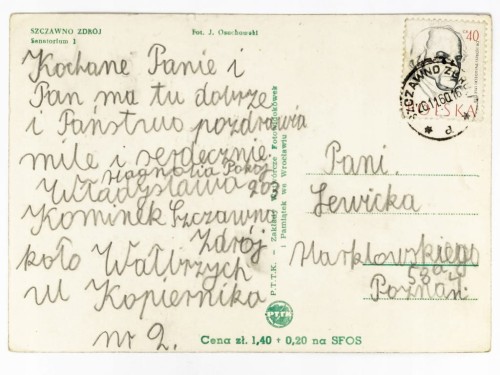 SZCZAWNO ZDRÓJ
Sanatorium I
Fot. J. Osuchowski
Kochane Panie i
Pan ma tu dobrze
i Państwo pozdrawia
mile i serdecznie.
Magnolia Pokój
Władysława 203
Kominek Szczawno
Zdrój
koło Wałbrzych
ul Kopiernika
nr 2.
P.T.T.K. - Zakłady Wytwórcze Fotowidokówek
i Pamiątek we Wrocławiu
PTTK
Cena zł. 1,40 + 0,20 na SFOS
40
POLSKA
SZCZAWNO ZDR
20.11.60.16
* d *
Pani.
Lewicka
Marklowskiego
Poznań.